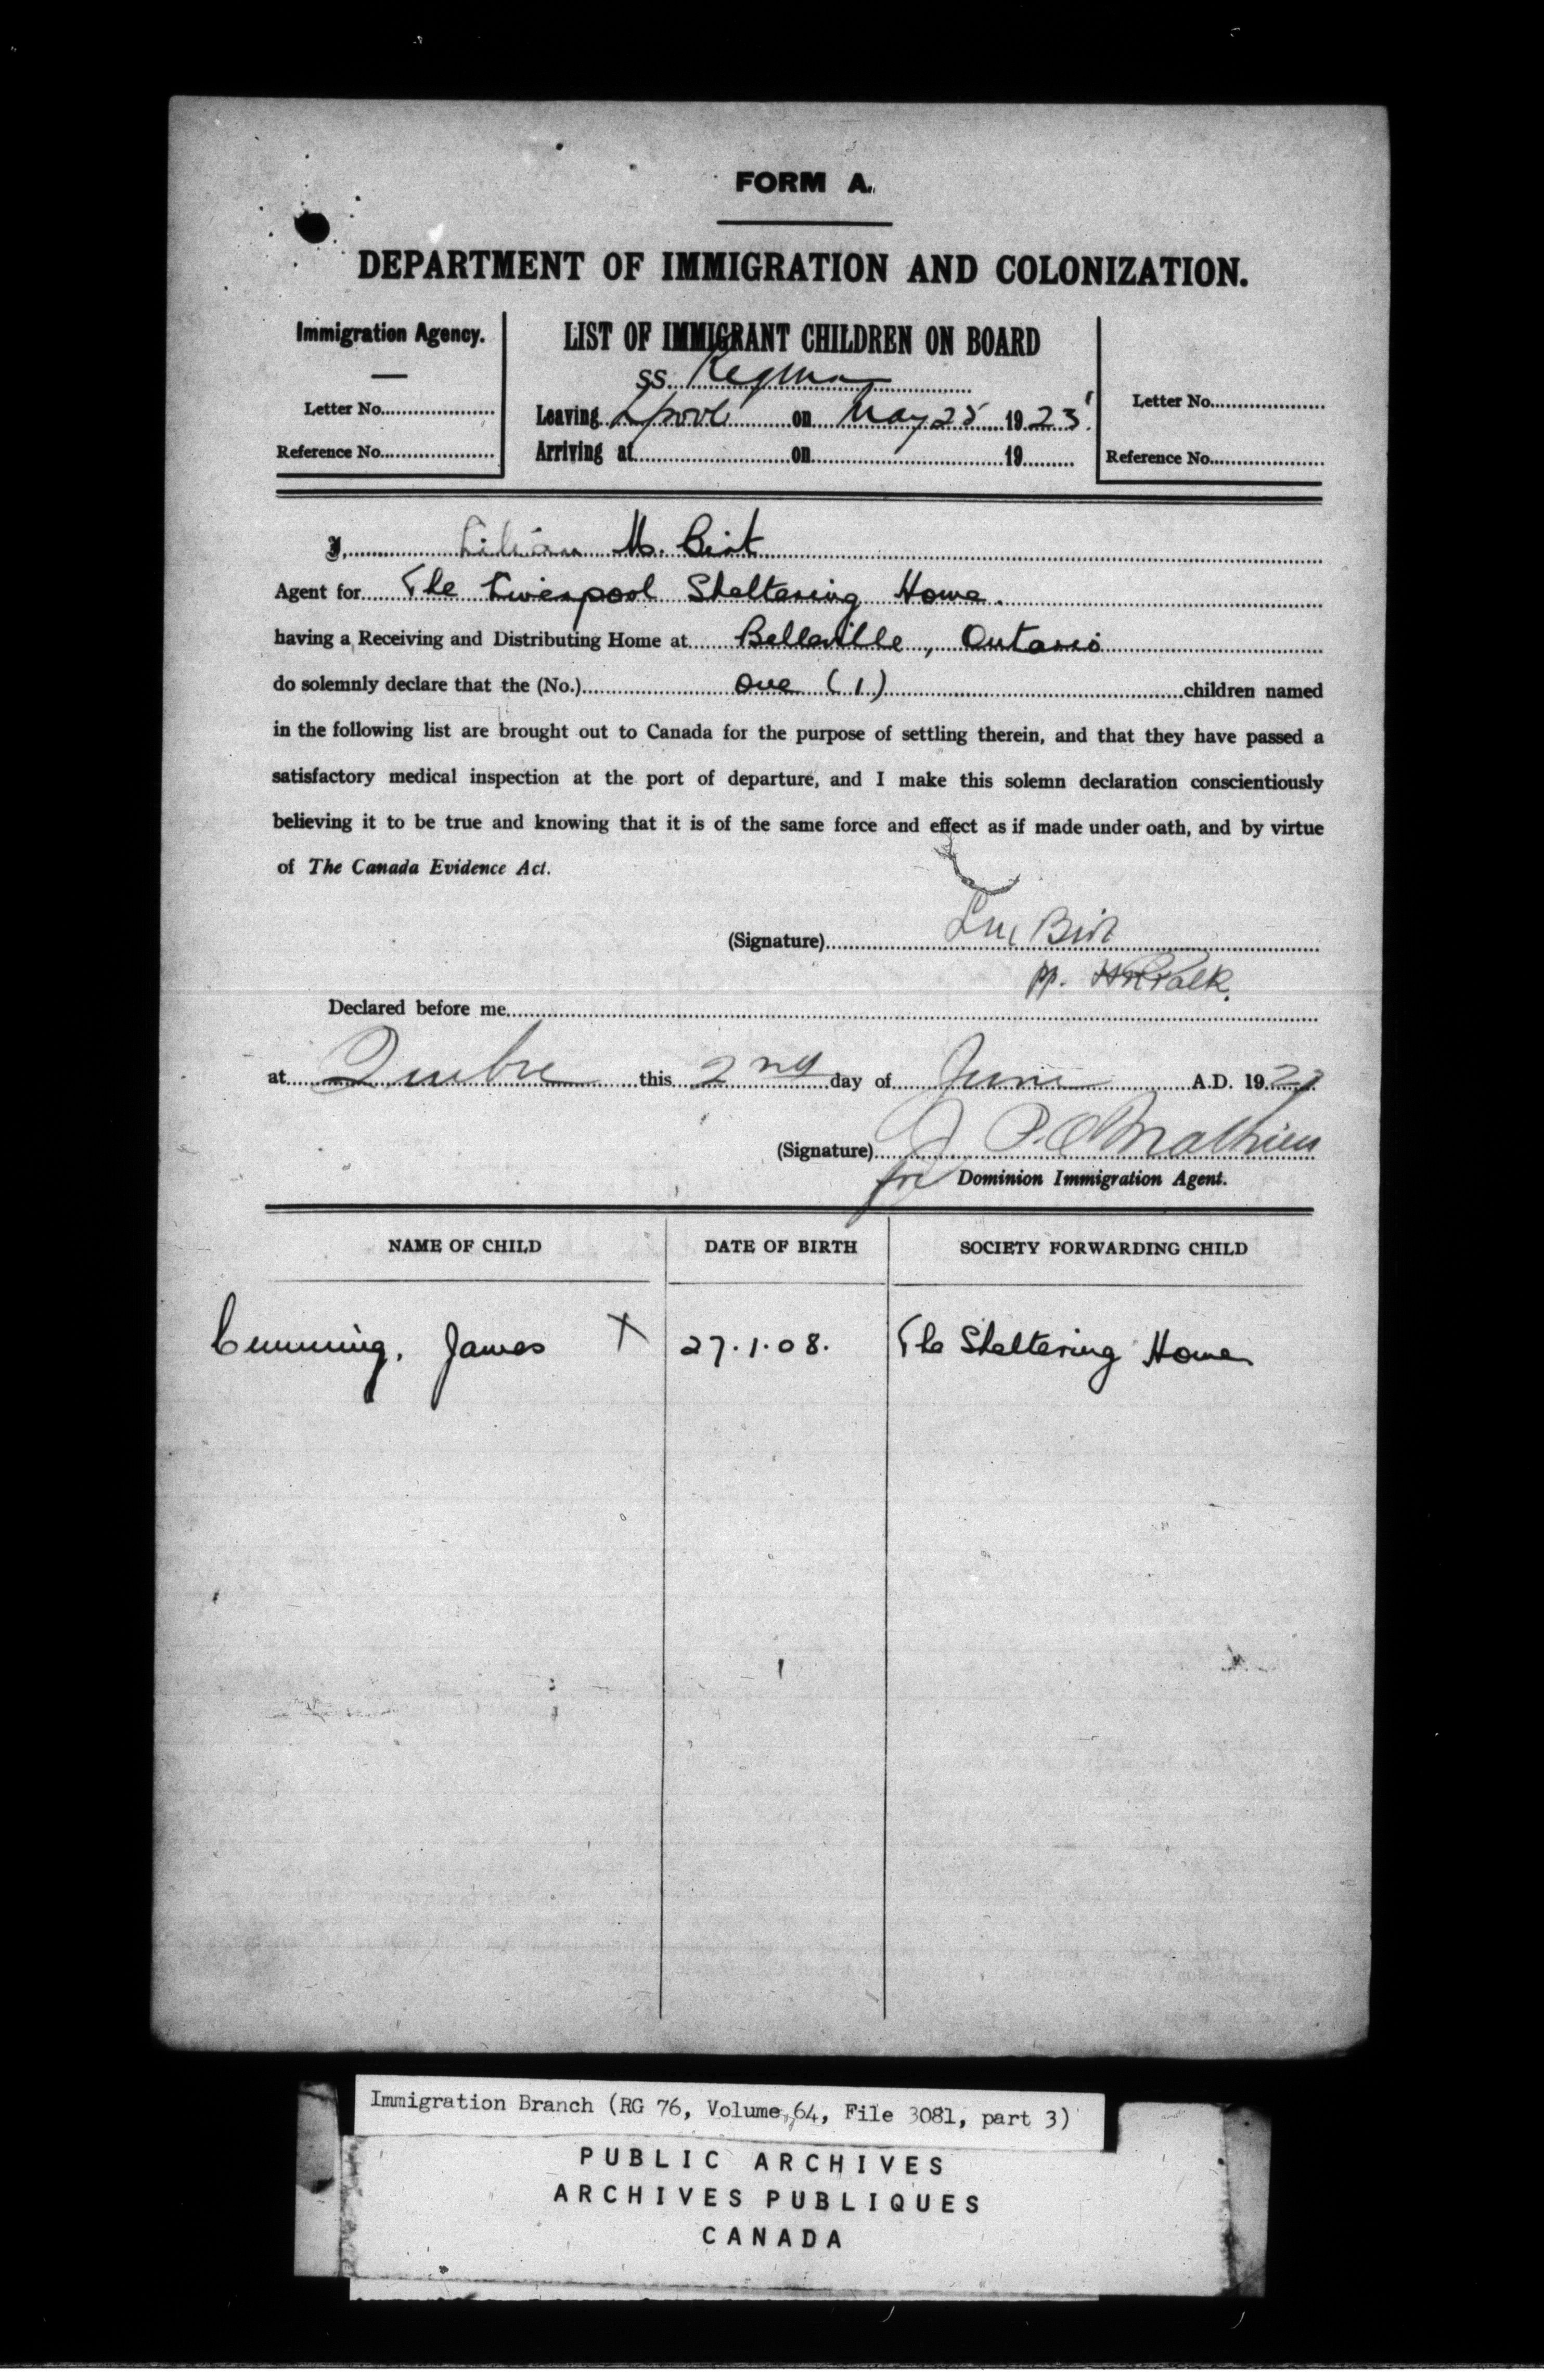 FORM A.
DEPARTMENT OF IMMIGRATION AND COLONIZATION.
Immigration Agency.
Letter No....................
Reference No....................
LIST OF IMMIGRANT CHILDREN ON BOARD
SS. Regina
Leaving L'pool on May 25 1923
Arriving at..............on..............19.........
Letter No....................
Reference No....................
I, Lilian M. Birt
Agent for The Liverpool Sheltering Home.
having a Receiving and Distributing Home at Belleville, Ontario
do solemnly declare that the (No.) One (1) children named
in the following list are brought out to Canada for the purpose of settling therein, and that they have passed a
satisfactory medical inspection at the port of departure, and I make this solemn declaration conscientiously
believing it to be true and knowing that it is of the same force and effect as if made under oath, and by virtue
of The Canada Evidence Act.
(Signature) Birt
pp.
Declared before me
at Quebec this 2nd day of June A.D. 1923
(Signature) J. P. O Mathieu
for Dominion Immigration Agent.
NAME OF CHILD DATE OF BIRTH SOCIETY FORWARDING CHILD
Cumming, James X 27.1.08. The Sheltering Home
Immigration Branch (RG 76, Volume 64, File 3081, part 3)
PUBLIC ARCHIVES
ARCHIVES PUBLIQUES
CANADA